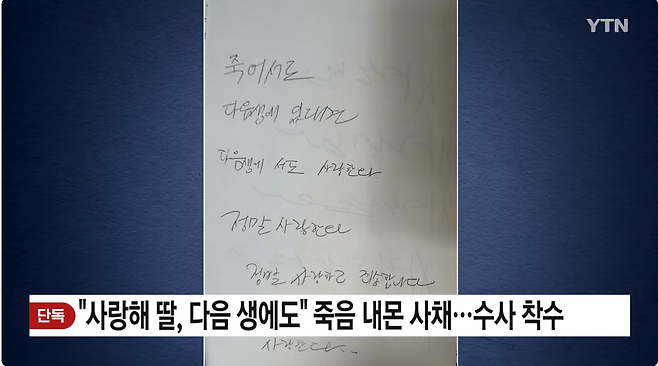 YTN
죽어서도
다음생에
다음생에 서도 사랑한다
정말 사랑한다
정말 사랑하고 죄송합니다
단독 "사랑해 딸, 다음 생에도" 죽음 내몬 사채…수사 착수
사랑한다..